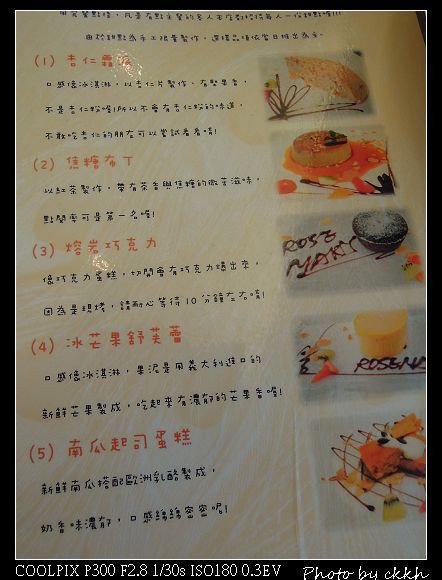 用完餐點後，凡是有點主餐的客人本店都招待每人一份甜點喔!!!
由於甜點為手工限量製作，選擇品項依當日推出為主。
(1) 杏仁霜凍
口感像冰淇淋，以杏仁片製作、有堅果香，
不是杏仁粉喔!所以不會有杏仁粉的味道，
不敢吃杏仁的朋友可以嘗試看看唷!
(2) 焦糖布丁
以紅茶製作，帶有茶香與焦糖的微苦滋味，
點閱率可是第一名喔!
(3) 熔岩巧克力
像巧克力蛋糕，切開會有巧克力爆出來，
因為是現烤，請耐心等待10分鐘左右唷!
(4) 冰芒果舒芙蕾
口感像冰淇淋，果泥是用義大利進口的
新鮮芒果製成，吃起來有濃郁的芒果香喔!
(5) 南瓜起司蛋糕
新鮮南瓜搭配歐洲乳酪製成，
奶香味濃郁，口感綿綿密密呢!
ROSE
MARY
ROSEMA
COOLPIX P300 F2.8 1/30s ISO180 0.3EV
Photo by ckkh